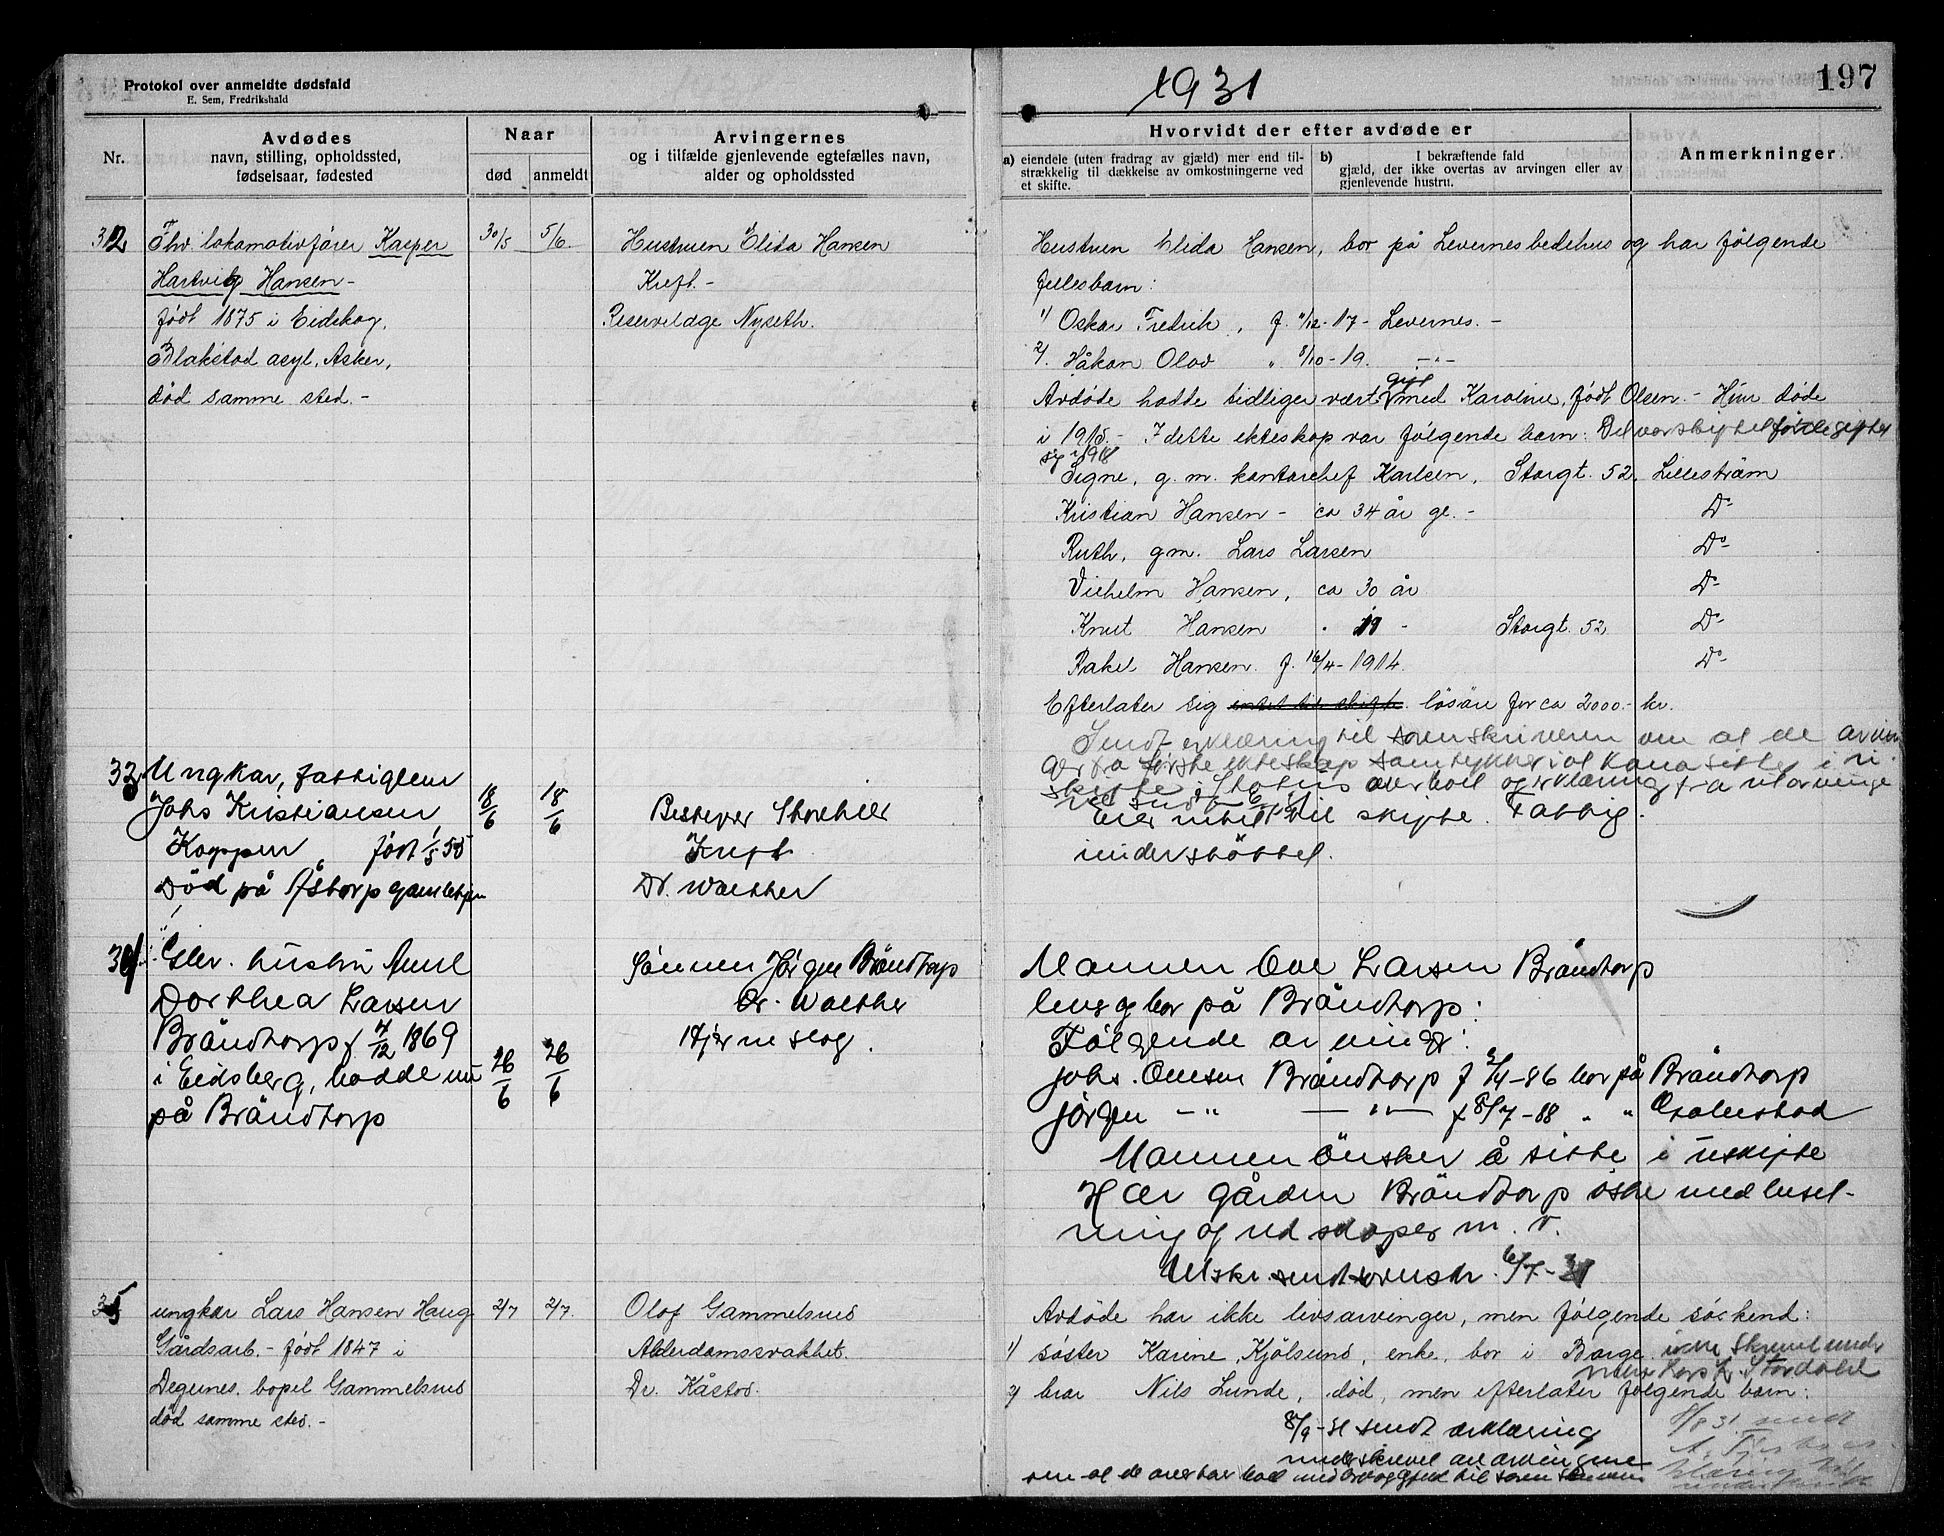 Protokol over anmeldte dødsfald
E. Sem, Fredrikshald
1931
197
Nr.
Avdødes
navn, stilling, opholdssted,
fødselsaar, fødested
Naar
død
anmeldt
Arvingernes
og i tilfælde gjenlevende egtefælles navn,
alder og opholdssted
Hvorvidt der efter avdøde er
a) eiendele (uten fradrag av gjæld) mer end til-
strækkelig til dækkelse av omkostningerne ved
et skifte.
b) I bekræftende fald
gjæld, der ikke overtas av arvingen eller av
gjenlevende hustru.
Anmerkninger
32
Fhv. lokomotivfører Kasper
Hartvig Hansen -
født 1875 i Eidskog,
Blakstad asyl, Asker,
død samme sted. -
30/5
5/6
Hustruen Elida Hansen
Kreft. -
Reservelæge Nyseth.
Hustruen Elida Hansen, bor på Levernes bedehus og har følgende
fellesbarn:
1) Oskar Fredrik, f. 11/12-17 - Levernes. -
2) Håkon Olav " 8/10-19. -"-
Avdøde hadde tidligere vært gift med Karoline, født Olsen. - Hun døde
i 1915. - I dette ekteskap var følgende barn: Det var skiftet før de giftet
sig i 1918
Signe, g. m. kontorchef Karlsen, Storgt. 52, Lillestrøm
Kristian Hansen - ca 34 år ge. - Do
Ruth, gm. Lars Larsen Do
Vilhelm Hansen, ca 30 år Do
Knut Hansen " 19 - Storgt. 52 Do
Rakel Hansen. f. 16/4-1914. Do
Efterlater sig intet til skifte. løsøre for ca 2000.- kr.
Sendt erklæring til sorenskriveren om at de arvin
ger fra første ekteskap samtykker i at kona sitter i u
skifte
33
Ungkar, fattiglem
Johs Kristiansen
Koppen født 1/5 55
Død på Åstorp gamlehjem
18/6
18/6
Bestyrer Storhill
Kreft
Dr. Walther
Eier intet til skifte. Fattig.
understøttet.
34
Gler. hustru
Dorthea Larsen
Brändtorp f 4/12 1869
i Eidsberg, bodde nu
på Brändtorp
26/6
26/6
Sönnen Jörgen Brändtorp
Dr. Walther
Hjerneslag.
Mannen Ove Larsen Brändtorp
lever og bor på Brändtorp:
Fölgende arvinger:
Johs. Ovesen Brändtorp f 3/4-86 bor på Brändtorp
Jörgen -"- -"- f 8/7-88 " "
Mannen önsker å sitte i uskifte
H er gården Brändtorp östre med beset-
ning og redskaper m. v.
Uski sendt sorenskr. 6/7-31
35
ungkar Lars Hansen Haug
Gårdsarb. - født 1847 i
Degernes, bopel Gammelsrud
død samme sted. -
2/7
2/7.
Olof Gammelsrud
Alderdomssvakhet.
Dr. Kåstad.
Avdøde har ikke livsarvinger, men følgende søskend:
1) søster Karine Kjølsund, enke, bor i Borge ikke skrevet under
2) bror Nils Lunde, død, men efterlater følgende barn:
8/9-31 sendt erklæring
underskrevet av arvingene
om at de overtar boet med arv og gjeld til sorenskriveren
8/8 31 sendt